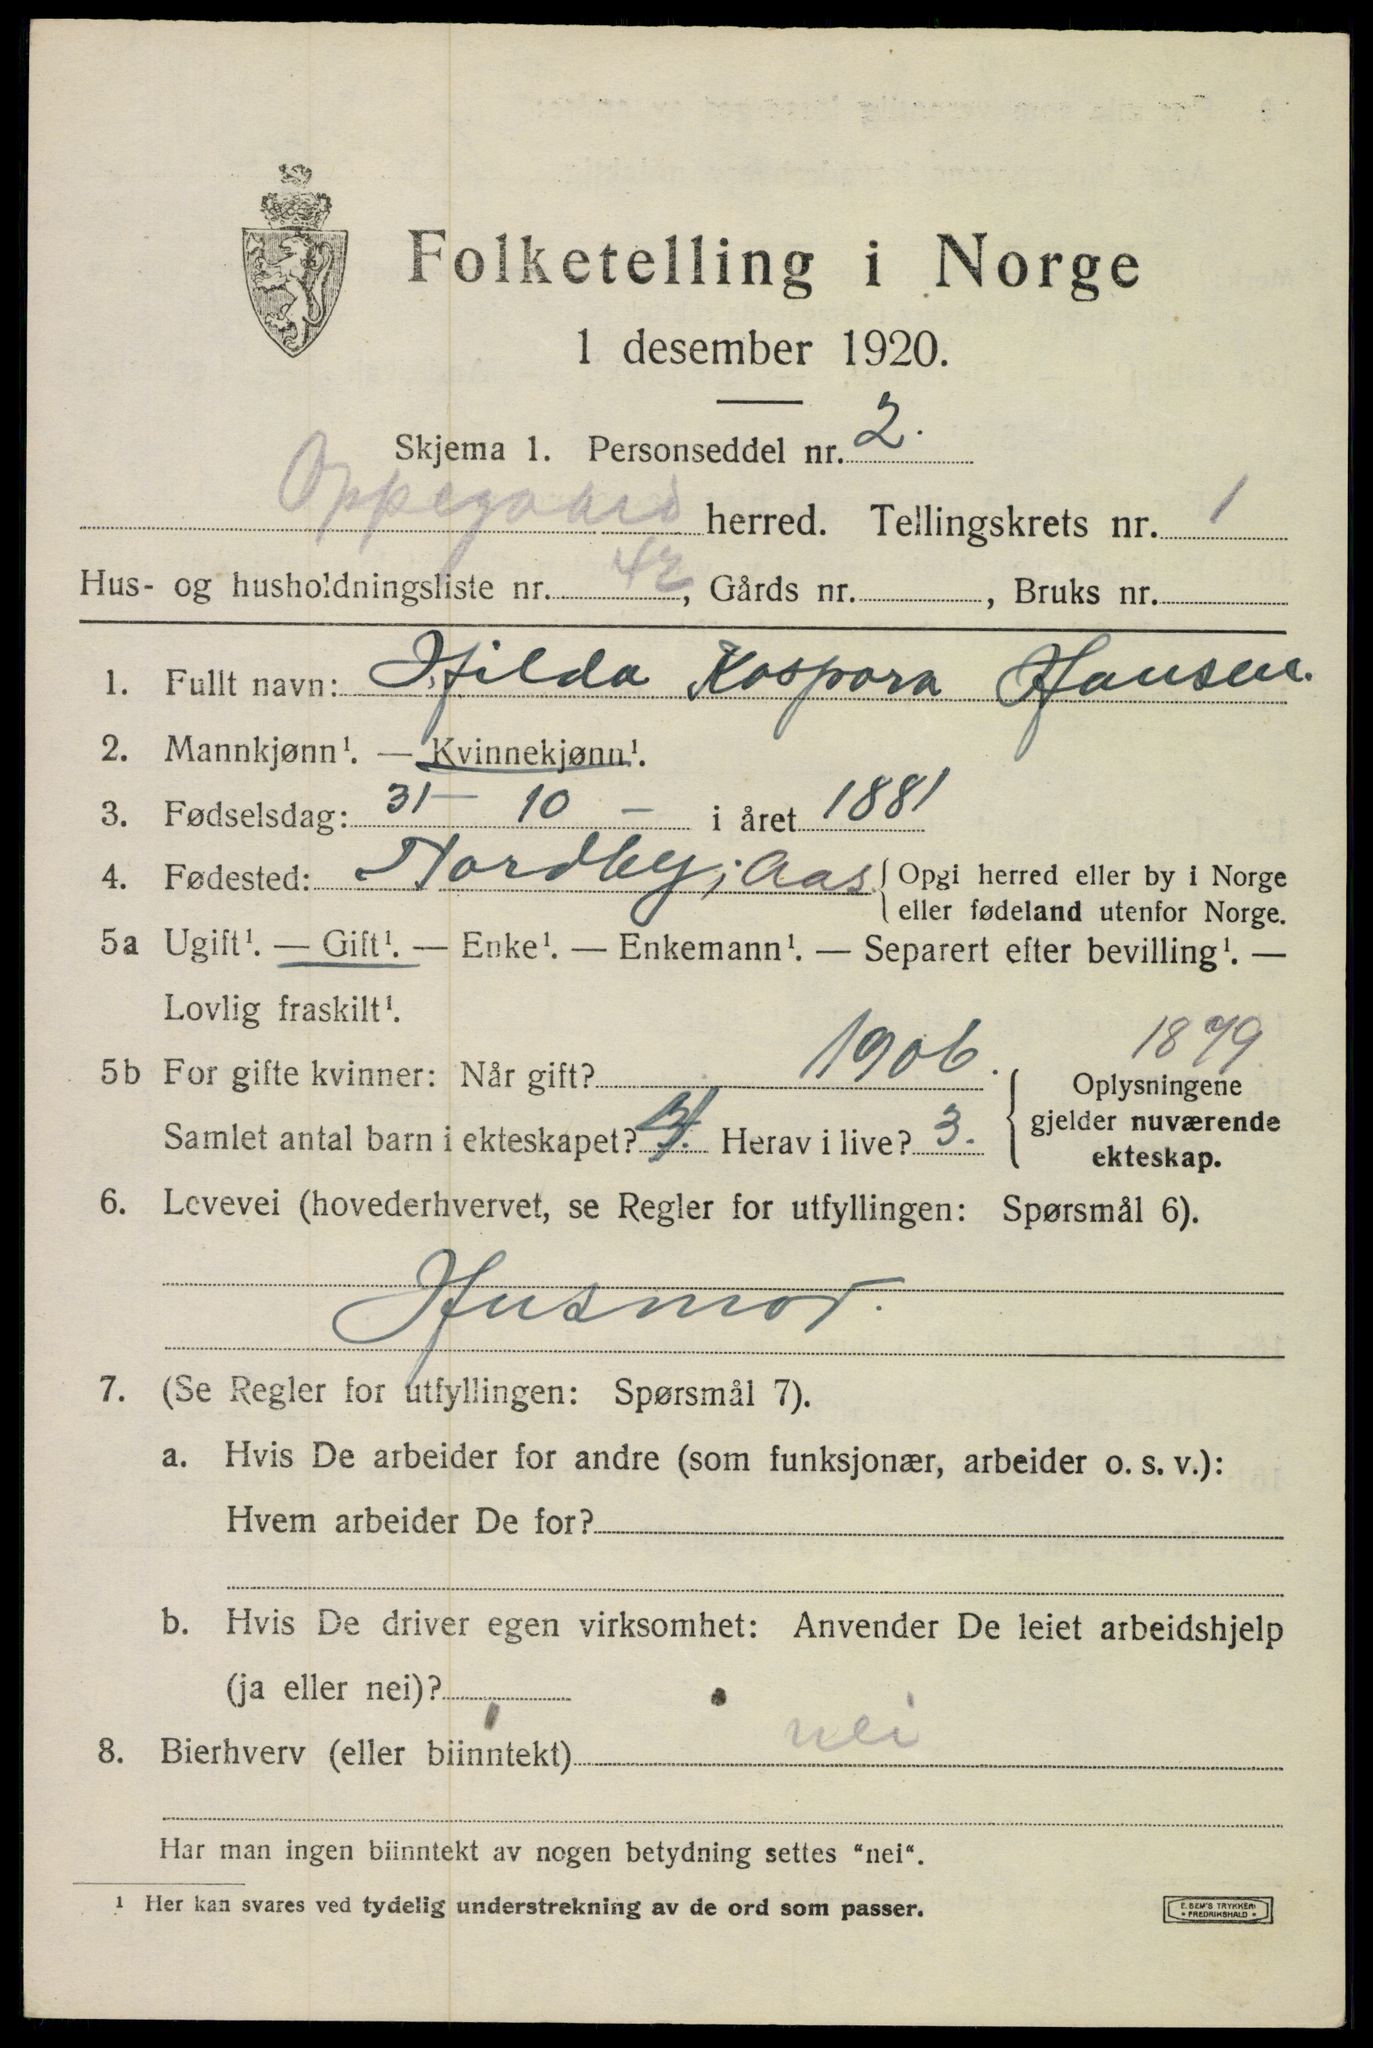 Folketelling i Norge
1 desember 1920.
Skjema 1. Personseddel nr. 2.
Oppegaard herred. Tellingskrets nr. 1
Hus- og husholdningsliste nr. 42, Gårds nr. , Bruks nr.
1. Fullt navn: Hilda Kaspara Hansen.
2. Mannkjønn¹. — Kvinnekjønn¹.
3. Fødselsdag: 31 — 10 — i året 1881
4. Fødested: Nordby, Aas. { Opgi herred eller by i Norge
eller fødeland utenfor Norge.
5a Ugift¹. — Gift¹. — Enke¹. — Enkemann¹. — Separert efter bevilling¹. —
Lovlig fraskilt¹.
1879
5b For gifte kvinner: Når gift? 1906. Oplysningene
gjelder nuværende
Samlet antal barn i ekteskapet? Herav i live? 3.
ekteskap.
6. Levevei (hovederhvervet, se Regler for utfyllingen: Spørsmål 6).
Husmor.
7. (Se Regler for utfyllingen: Spørsmål 7).
a. Hvis De arbeider for andre (som funksjonær, arbeider o. s. v.):
Hvem arbeider De for?
b. Hvis De driver egen virksomhet: Anvender De leiet arbeidshjelp
(ja eller nei)?
8. Bierhverv (eller biinntekt) nei
Har man ingen biinntekt av nogen betydning settes "nei".
¹ Her kan svares ved tydelig understrekning av de ord som passer.
E. SEM'S TRYKKERI
• FREDRIKSHALD •